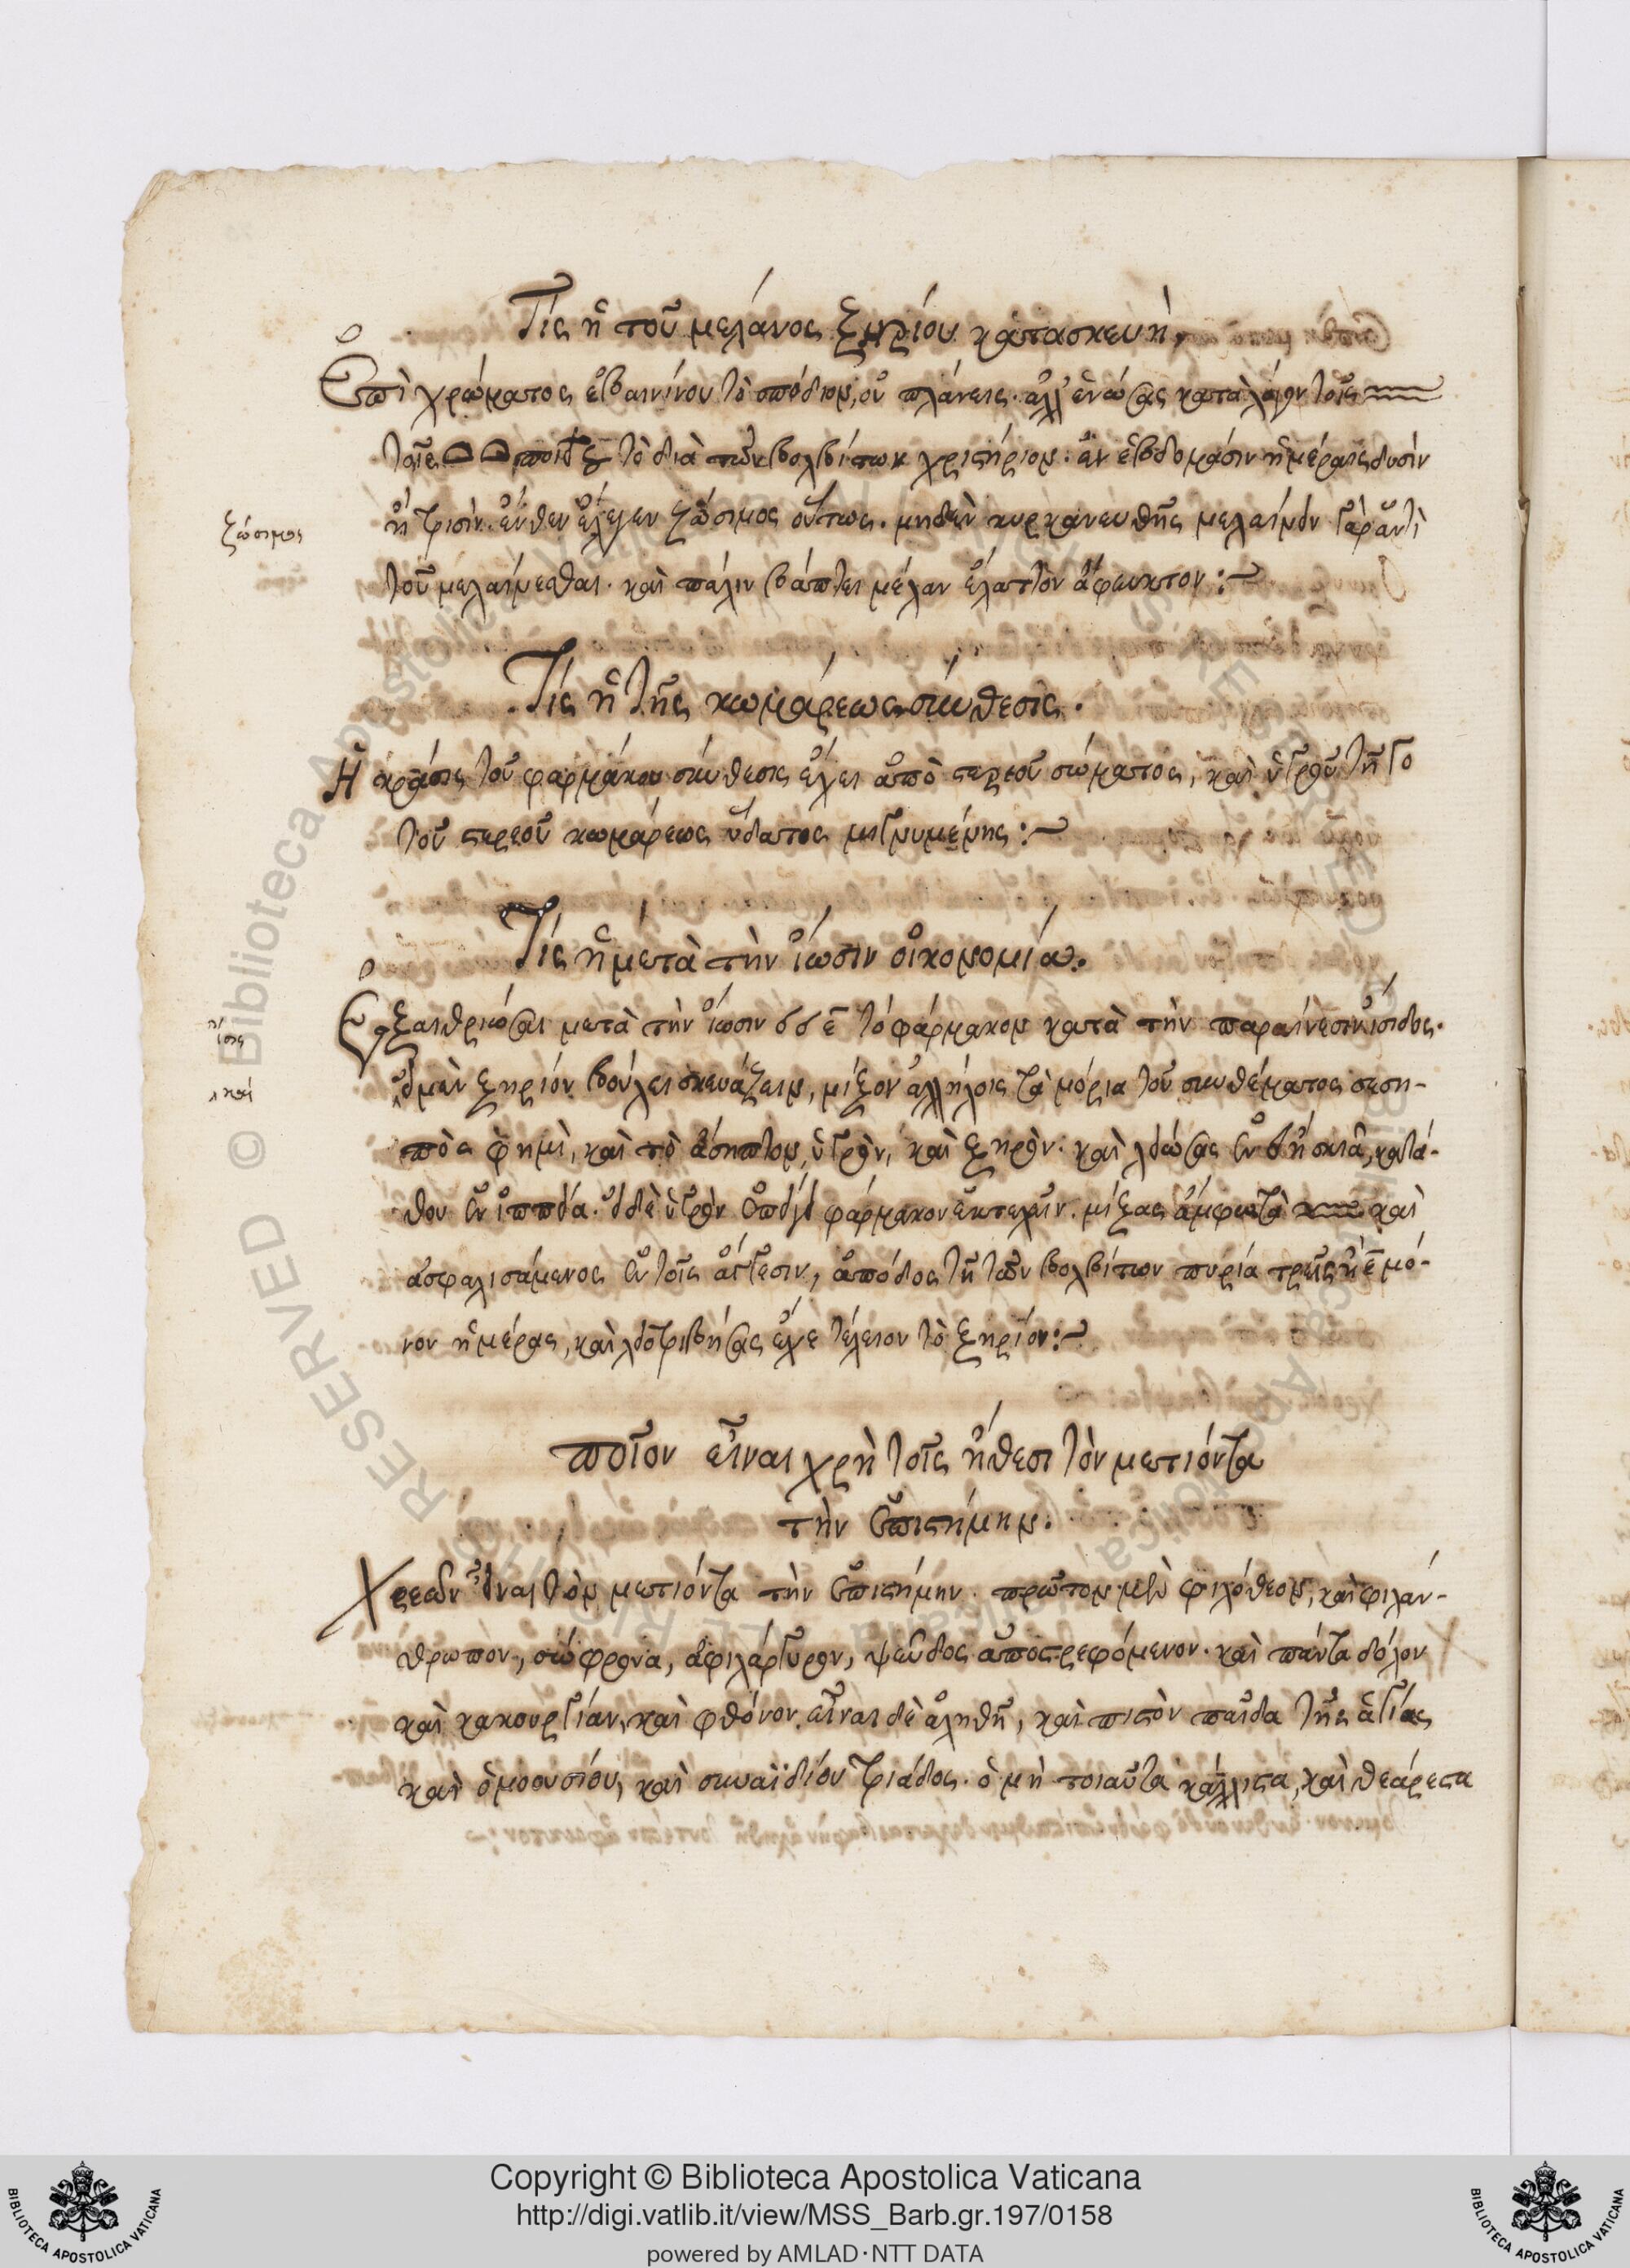 Τίς ἡ τοῦ μελάνος ξηρίου κατασκευή.
Ἐπὶ χρώματος ἐβαινίνου τὸ σπόδιον, οὐ πλάνεις. ἀλλ' ἑνώσας κατὰ λόγον τοῖς
τοῖς τὸ διὰ τῶν βολβίτων χριστήριον. ἐν ἑβδομάσιν ἡμέραις δυσὶν
ἢ τρισίν. ἔνθεν ἔλεγεν ζώσιμος οὕτως. μηδὲν κυρκανευθῆς μελαῖνον γὰρ ἀντὶ
ζώσιμος
τοῦ μελαίνεσθαι. καὶ πάλιν βάπτει μέλαν ἐλαττὸν ἄφευκτον:~
Τίς ἡ τῆς κωμάρεως σύνθεσις.
Ἡ κράσις τοῦ φαρμάκου σύνθεσις ἔχει ἀπὸ στερεοῦ σώματος, καὶ ὑγροῦ τῆ γο
τοῦ στερεοῦ κωμάρεως ὕδατος μιγνυμένης:~
Τίς ἡ μετὰ τὴν ἴωσιν οἰκονομία.
Ἐξαιθριώσαι μετὰ τὴν ἴωσιν τὸ φάρμακον κατὰ τὴν παραίνεσιν ἴσιδος.
ἴσις
ξηρίον βούλει σκευάζειν, μίξον ἀλλήλοις τὰ μόρια τοῦ συνθέματος σεση-
καὶ
πὸς φημὶ, καὶ τὸ ἄσηπτον, ὑγρὸν, καὶ ξηρὸν. καὶ λειώσας ἐν σκιᾶ, κατά-
θου ἐν ὑγρὸν φάρμακον ἐκτελεῖν. μίξας ἀμφω τὰ καὶ
ἀσφαλισάμενος ἐν τοῖς ἄγγεσιν, ἀπόδος τῆ τῶν βολβίτων πυρία τρεῖς ἢ ε̄ μό-
νον ἡμέρας, καὶ λειοτριβήσας ἔχε τέλειον τὸ ξηρίον:~
ποῖον εἶναι χρὴ τοῖς ἤθεσι τὸν μετιόντα
τὴν ἐπιστήμην.
Χρεὼν εἶναι τὸν μετιόντα τὴν ἐπιστήμην. πρῶτον μὲν φιλόθεον, καὶ φιλάν-
θρωπον, σώφρονα, ἀφιλάργυρον, ψεῦδος ἀποστρεφόμενον. καὶ πάντα δόλον
καὶ κακουργίαν, καὶ φθόνον. εἶναι δὲ ἀληθῆ, καὶ πιστὸν παῖδα τῆς ἁγίας
καὶ ὁμοουσίου, καὶ συναϊδίου τριάδος. ὁ μὴ τοιαῦτα κάλλιστα, καὶ θεάρεστα
Copyright © Biblioteca Apostolica Vaticana
http://digi.vatlib.it/view/MSS_Barb.gr.197/0158
powered by AMLAD·NTT DATA
BIBLIOTECA APOSTOLICA VATICANA
BIBLIOTECA APOSTOLICA VATICANA